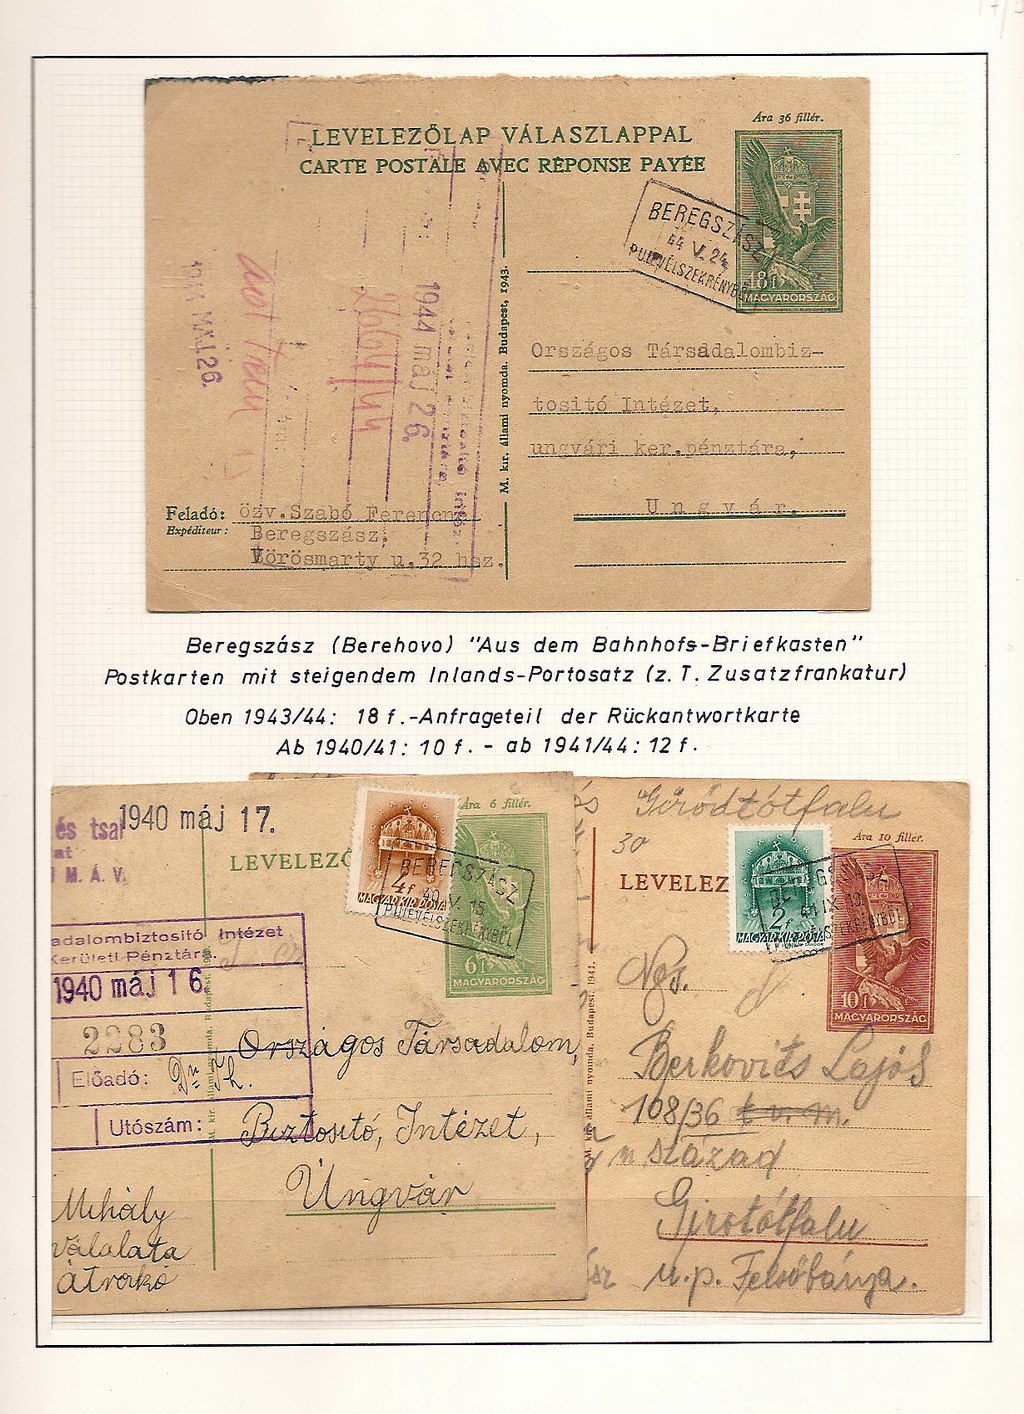 Ára 36 fillér.
LEVELEZŐLAP VÁLASZLAPPAL
CARTE POSTALE AVEC RÉPONSE PAYÉE
BEREGSZÁSZ
44 V. 24
PU LEVÉLSZEKRÉNYBŐL
18 f
MAGYARORSZÁG
M. kir. állami nyomda. Budapest, 1943.
1944 MÁJ 26.
1944 máj 26.
Országos Társadalombiz-
tositó Intézet,
ungvári ker.pénztára,
Ungvár.
Feladó: özv.Szabó Ferencné
Expéditeur:
Beregszász,
Vörösmarty u.32 hsz.
Beregszász (Berehovo) "Aus dem Bahnhofs-Briefkasten"
Postkarten mit steigendem Inlands-Portosatz (z.T. Zusatzfrankatur)
Oben 1943/44: 18 f.-Anfrageteil der Rückantwortkarte
Ab 1940/41: 10 f. - ab 1941/44: 12 f.
és tsai
at
M. Á. V.
1940 máj 17.
LEVELEZŐ
Ára 6 fillér.
4f
MAGYAR KIR. POSTA
BEREGSZÁSZ
40 V. 15
PU LEVÉLSZEKRÉNYBŐL
6 f
MAGYARORSZÁG
adalombiztosító Intézet
Kerületi Pénztára.
1940 máj 16.
2283
Előadó:
Utószám:
Országos Társadalom,
Biztosító, Intézet,
Ungvár
Mihály
válalata
átvorkó
Giródtótfalu
30
Ára 10 fillér.
LEVELEZ
2f
MAGYAR KIR. POSTA
BEREGSZÁSZ
41 IX
10 f
MAGYARORSZÁG
M. kir. állami nyomda. Budapest, 1941.
Ngs.
Berkovits Lajós
108/36 t v. m.
század
Girotótfalu
u.p. Felsőbánya.